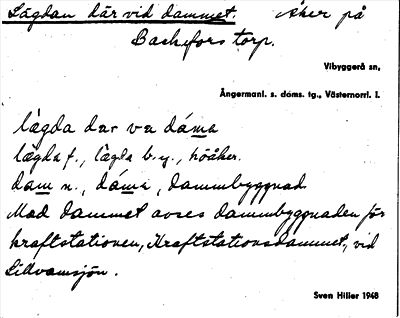 Lägdan där vid dammet. Åker på
Backfors torp.
Vibyggerå sn,
Ångermanl. s. doms. tg., Västernorrl. l.
lägda dar va dáma
lägda f., lägda b. y., höåker.
dam n., dáma, dammbyggnad
Med dammet avses dammbyggnaden för
kraftstationen, Kraftstationsdammet, vid
Lillvamsjön.
Sven Hiller 1948